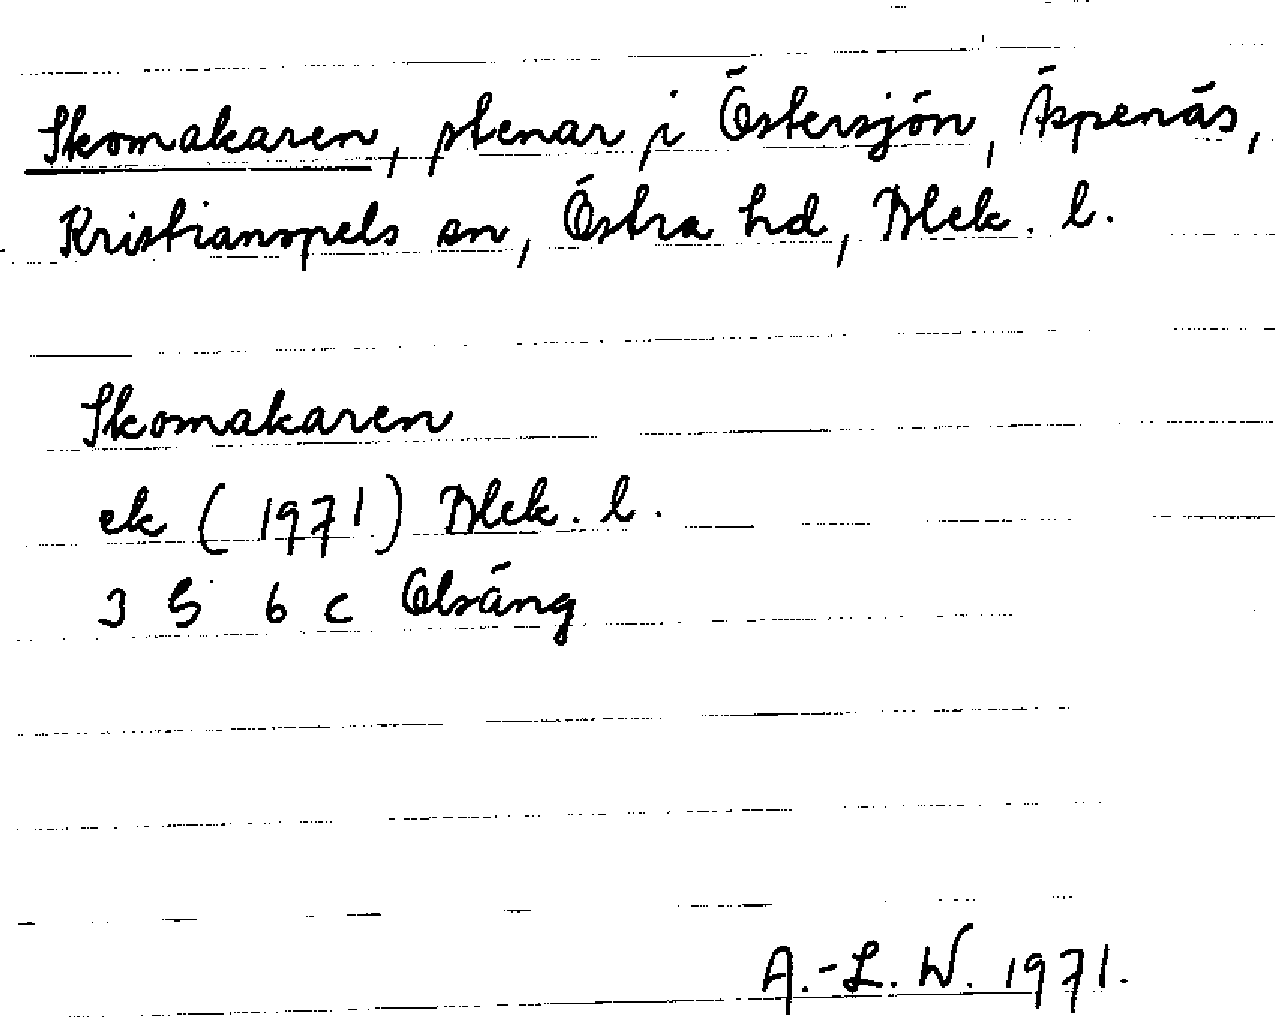 Skomakaren, stenar i Östersjön, Äspenäs,
Kristianopels sn, Östra hd, Blek. l.
Skomakaren
ek (1971) Blek. l.
3 G 6 c Olsäng
A.-L. W. 1971.